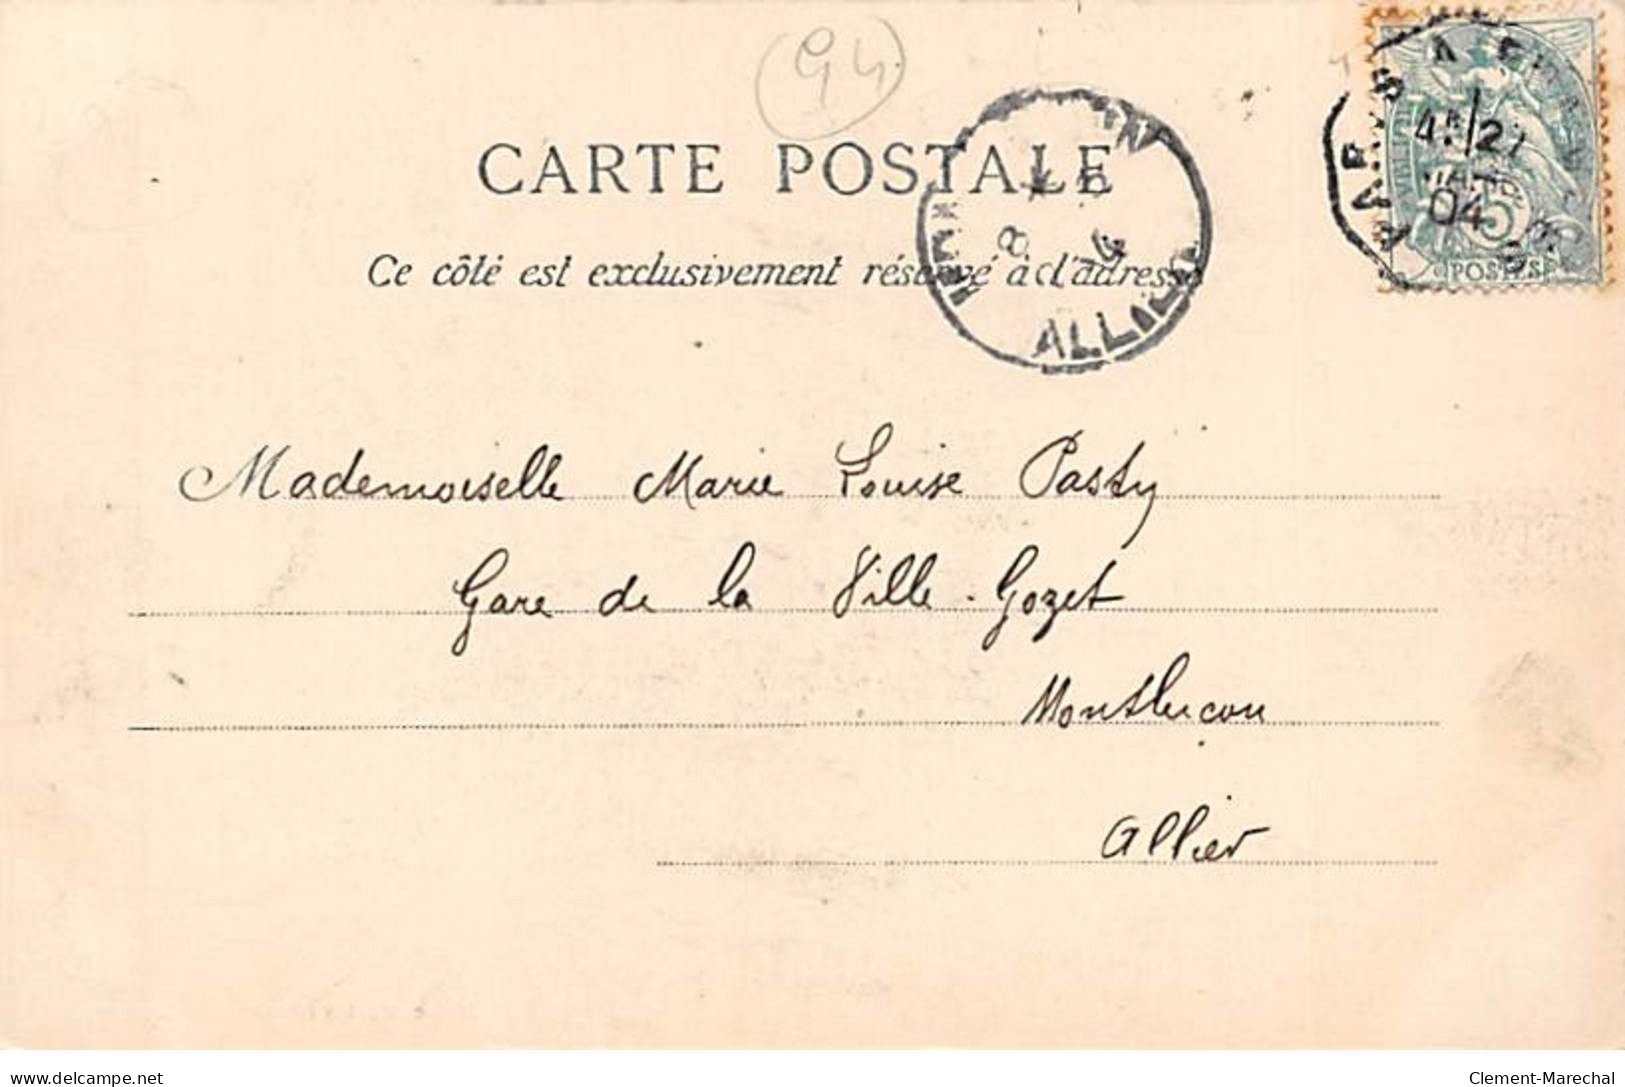 94
CARTE POSTALE
Ce côté est exclusivement réservé à l'adresse
ALLIER
04
5
POSTES
Mademoiselle Marie Louise Passy
Gare de la Ville-Gozet
Montluçon
Allier
delcampe.net
Clement-Marechal